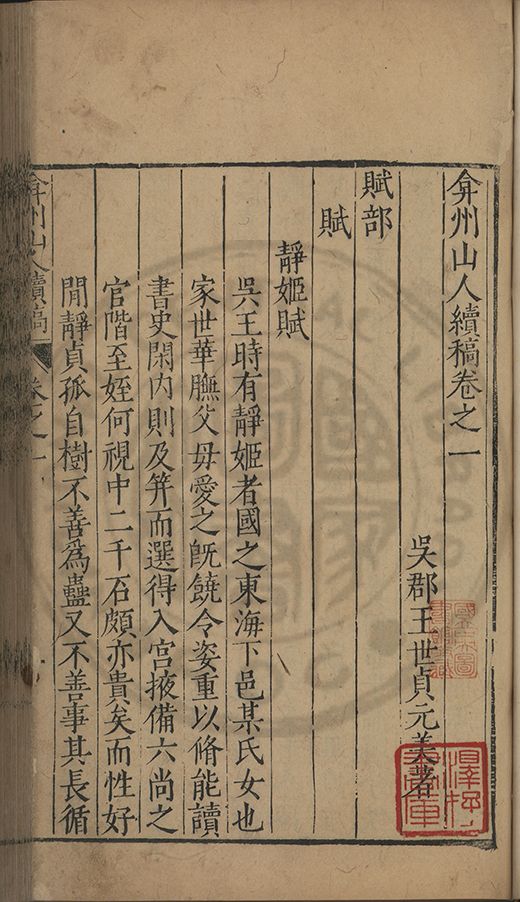 弇州山人續稿卷之一
吳郡王世貞元美著
賦部
賦
靜姬賦
吳王時有靜姬者國之東海下邑某氏女也
家世華膴父母愛之旣饒令姿重以脩能讀
書史閑內則及筓而選得入宮掖備六尚之
官階至娙何視中二千石頗亦貴矣而性好
閒靜貞孤自樹不善爲蠱又不善事其長循
弇州山人續稿 卷之一